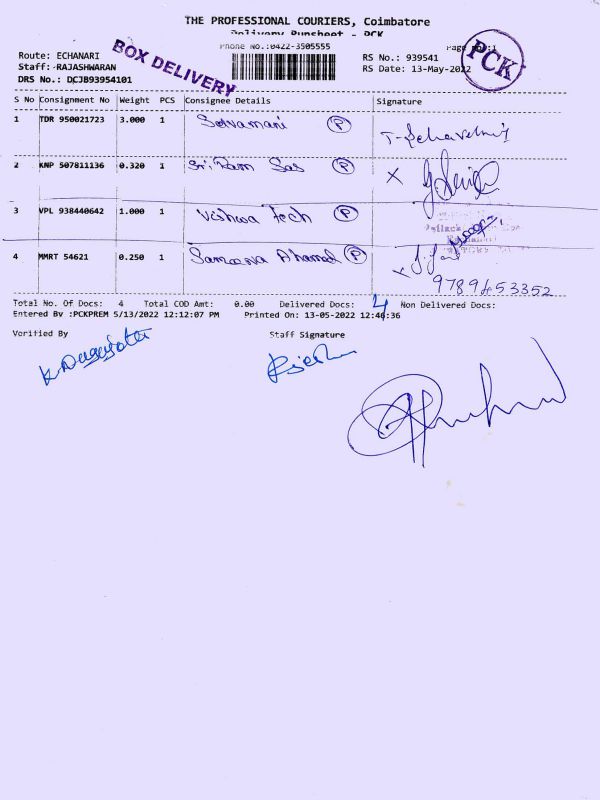 THE PROFESSIONAL COURIERS, Coimbatore
Delivery Runsheet - PCK
BOX DELIVERY
Phone No.:0422-3505555
PCK
Route: ECHANARI
RS No.: 939541
Staff: RAJASHWARAN
RS Date: 13-May-2022
DRS No.: DCJB93954101
S No Consignment No Weight PCS Consignee Details Signature
1 TDR 950021723 3.000 1 Selvamani P
2 KNP 507811136 0.320 1 Sri Ram Sas P
3 VPL 938440642 1.000 1 Vishwa Tech P
4 MMRT 54621 0.250 1 Sameena Ahamed P
9789453352
Total No. Of Docs: 4 Total COD Amt: 0.00 Delivered Docs: 4 Non Delivered Docs:
Entered By :PCKPREM 5/13/2022 12:12:07 PM Printed On: 13-05-2022 12:46:36
Verified By Staff Signature